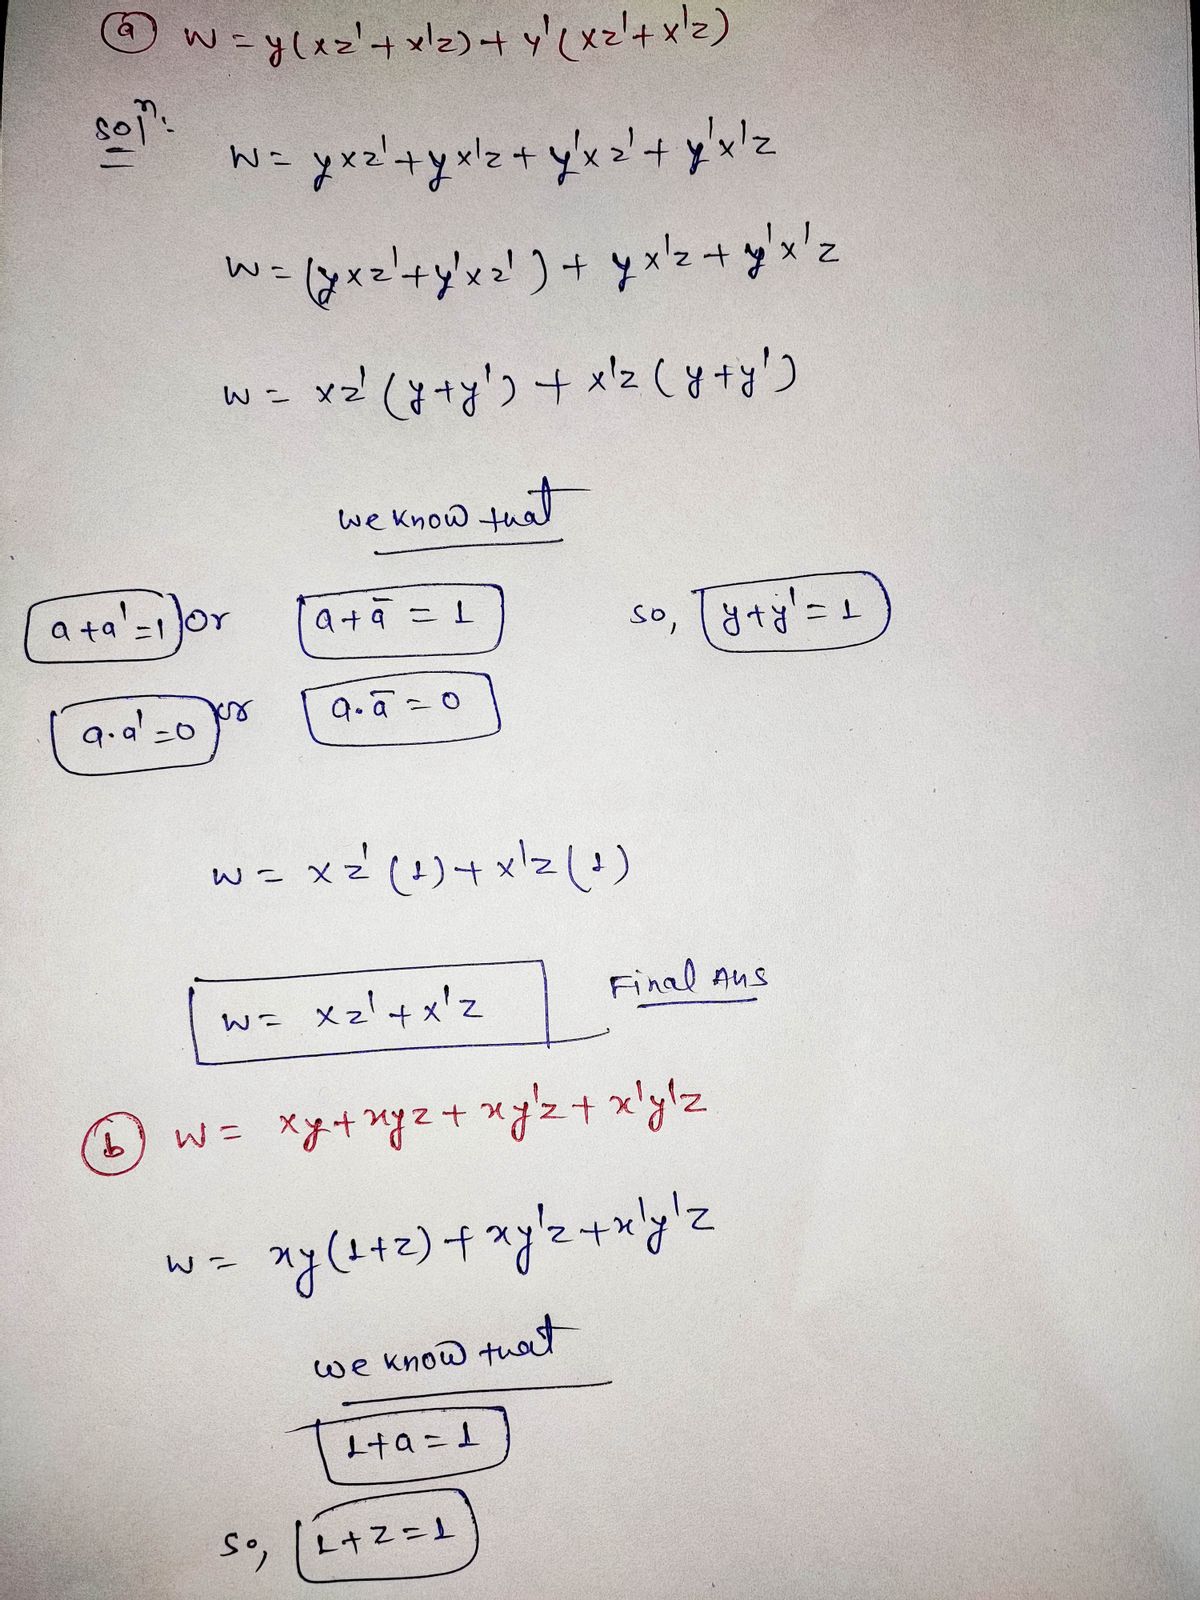 (a) W = y(xz' + x'z) + y'(xz' + x'z)
Solⁿ:
W = yxz' + yx'z + y'xz' + y'x'z
W = (yxz' + y'xz') + yx'z + y'x'z
W = xz' (y + y') + x'z (y + y')
we know that
a + a' = 1 or a + ā = 1 so, y + y' = 1
a.a' = 0 or a.ā = 0
W = xz' (1) + x'z (1)
W = xz' + x'z Final Ans
(b) W = xy + xyz + xy'z + x'y'z
W = xy(1+z) + xy'z + x'y'z
we know that
1 + a = 1
So, 1 + z = 1